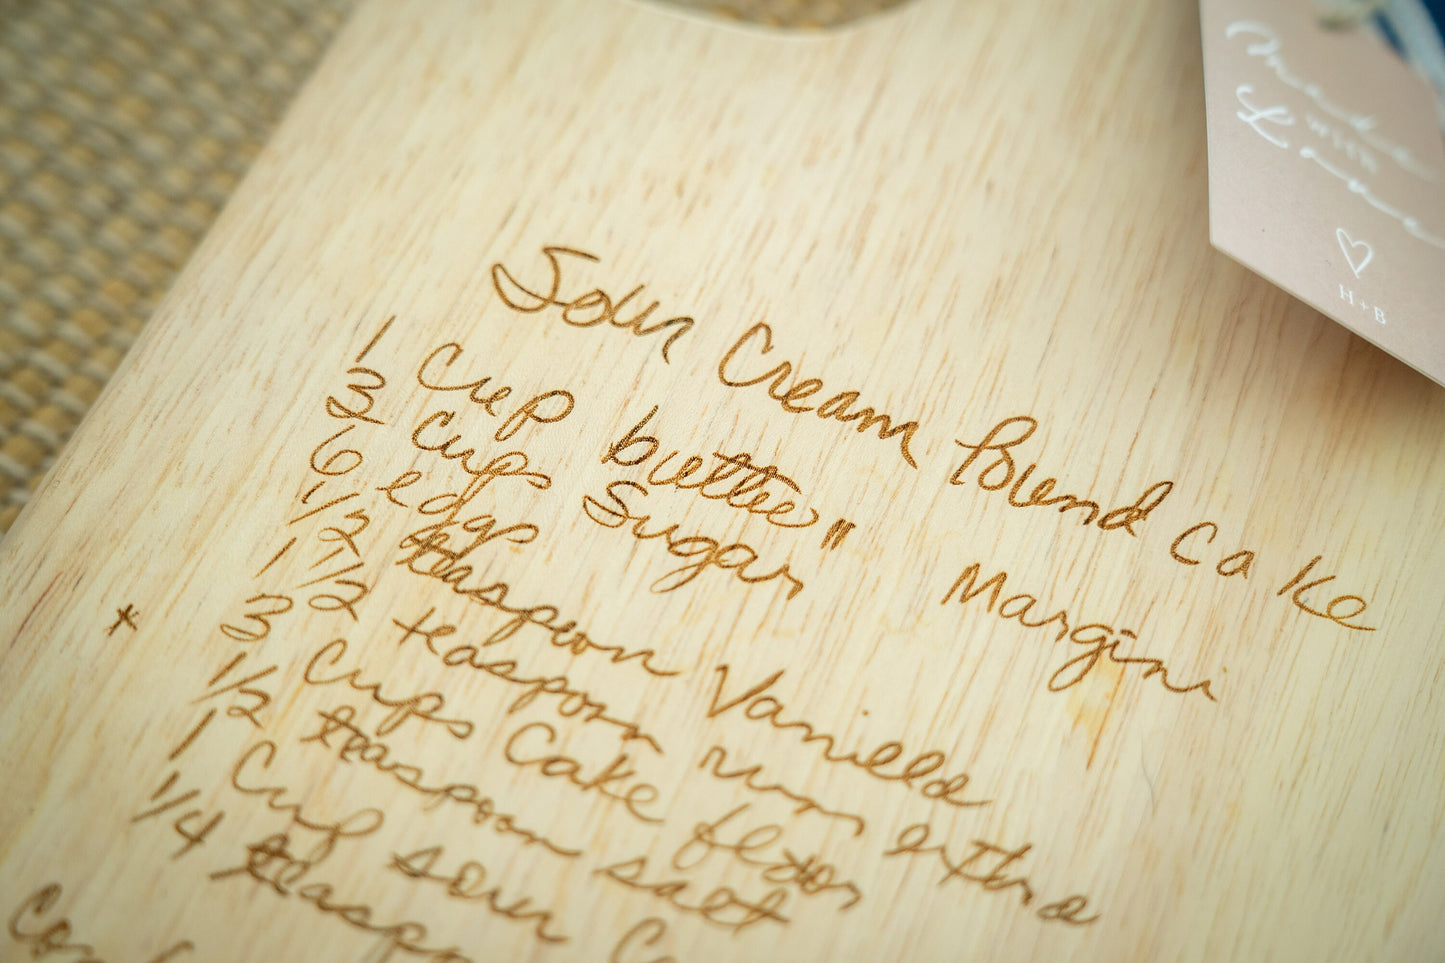 Sour Cream Pound Cake
1 Cup butter" Margini
3 Cups Sugar
6 eggs
1/2 teaspoon Vanilla
1 1/2 teaspoon rum extra
* 3 Cups Cake flour
1/2 teaspoon salt
1 Cup sour
1/4
made
with
Love
H + B